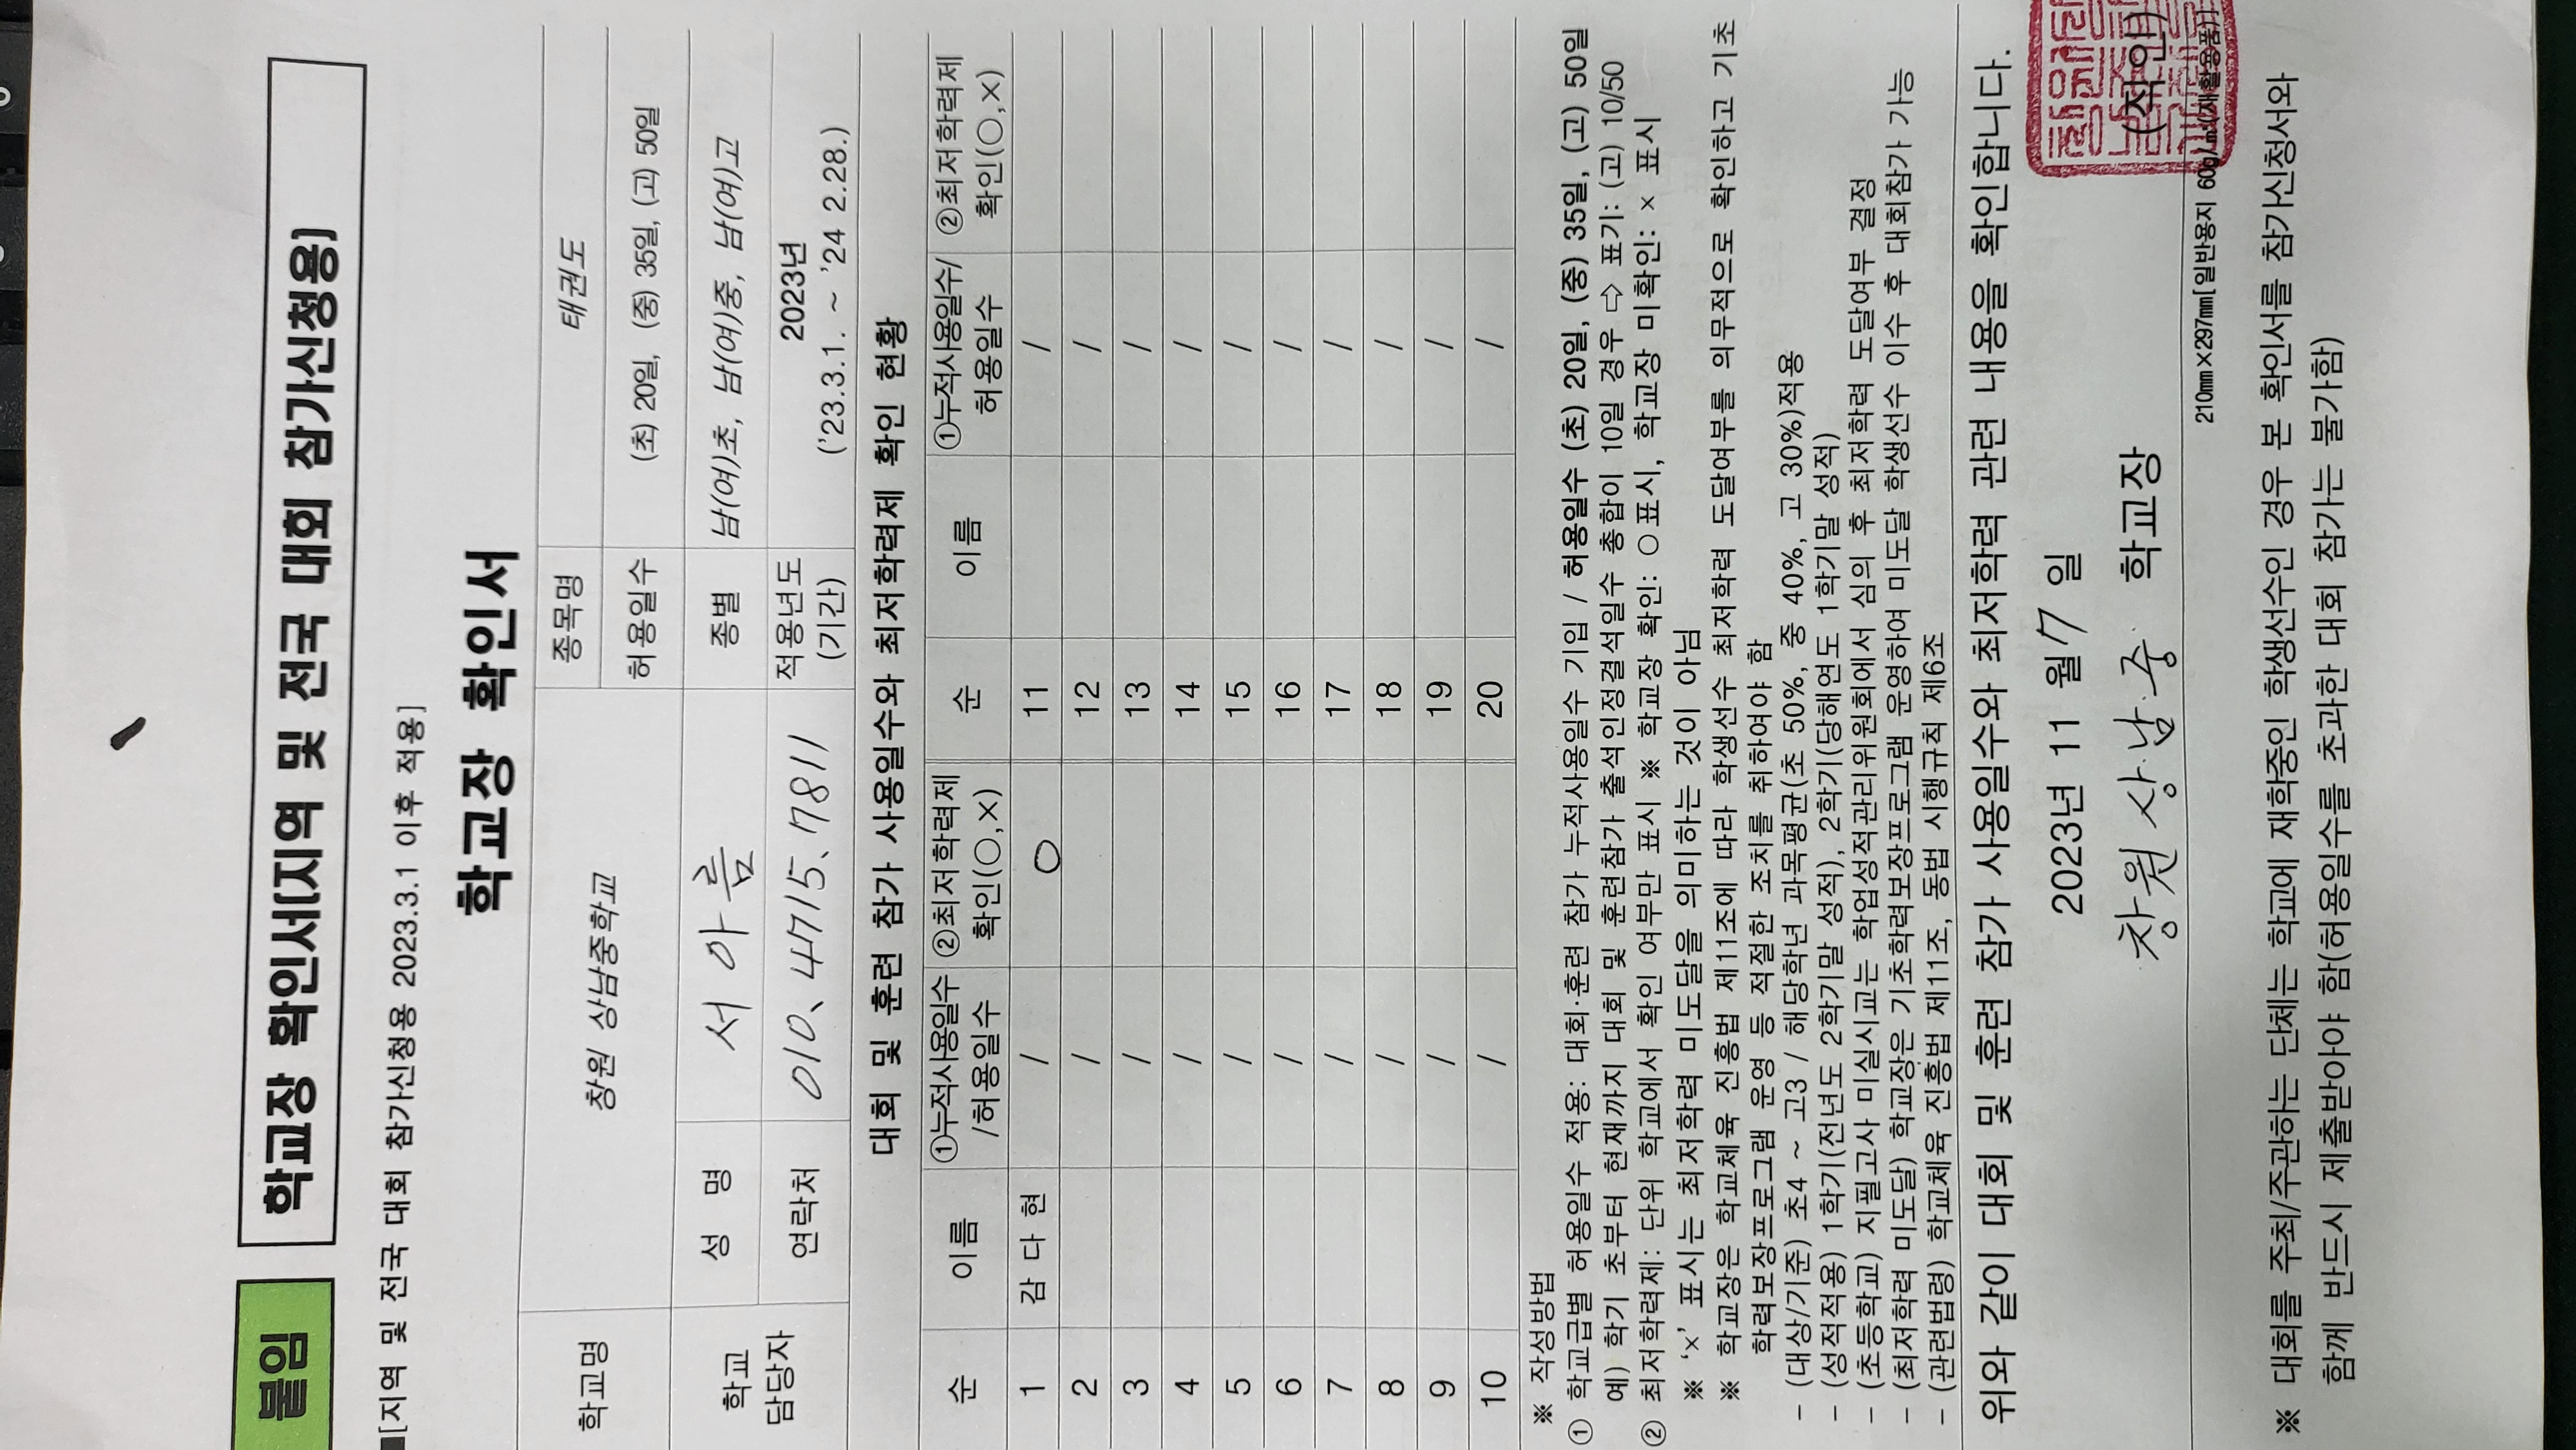 붙임
학교장 확인서[지역 및 전국 대회 참가신청용]
■[지역 및 전국 대회 참가신청용 2023.3.1 이후 적용]
학교장 확인서
학교명 창원 상남중학교 종목명 태권도
허용일수 (초) 20일, (중) 35일, (고) 50일
학교 담당자 성 명 서아름 종별 남(여)초, 남(여)중, 남(여)고
연락처 010. 4715. 7811 적용년도 (기간) 2023년 ('23.3.1. ~ '24 2.28.)
대회 및 훈련 참가 사용일수와 최저학력제 확인 현황
순 이름 ①누적사용일수/허용일수 ②최저학력제 확인(○,×) 순 이름 ①누적사용일수/허용일수 ②최저학력제 확인(○,×)
1 감다현 / ○ 11 /
2 / 12 /
3 / 13 /
4 / 14 /
5 / 15 /
6 / 16 /
7 / 17 /
8 / 18 /
9 / 19 /
10 / 20 /
※ 작성방법
① 학교급별 허용일수 적용: 대회·훈련 참가 누적사용일수 기입 / 허용일수 (초) 20일, (중) 35일, (고) 50일
예) 학기 초부터 현재까지 대회 및 훈련참가 출석인정결석일수 총합이 10일 경우 ⇨ 표기: (고) 10/50
② 최저학력제: 단위 학교에서 확인 여부만 표시 ※ 학교장 확인: ○표시, 학교장 미확인: × 표시
※ '×' 표시는 최저학력 미도달을 의미하는 것이 아님
※ 학교장은 학교체육 진흥법 제11조에 따라 학생선수 최저학력 도달여부를 의무적으로 확인하고 기초
학력보장프로그램 운영 등 적절한 조치를 취하여야 함
- (대상/기준) 초4 ~ 고3 / 해당학년 과목평균(초 50%, 중 40%, 고 30%)적용
- (성적적용) 1학기(전년도 2학기말 성적), 2학기(당해연도 1학기말 성적)
- (초등학교) 지필고사 미실시교는 학업성적관리위원회에서 심의 후 최저학력 도달여부 결정
- (최저학력 미도달) 학교장은 기초학력보장프로그램 운영하여 미도달 학생선수 이수 후 대회참가 가능
- (관련법령) 학교체육 진흥법 제11조, 동법 시행규칙 제6조
위와 같이 대회 및 훈련 참가 사용일수와 최저학력 관련 내용을 확인합니다.
2023년 11 월 17 일
창원상남중 학교장 (직인)
210㎜×297㎜[일반용지 60g/㎡(재활용품)]
※ 대회를 주최/주관하는 단체는 학교에 재학중인 학생선수인 경우 본 확인서를 참가신청서와
함께 반드시 제출받아야 함(허용일수를 초과한 대회 참가는 불가함)